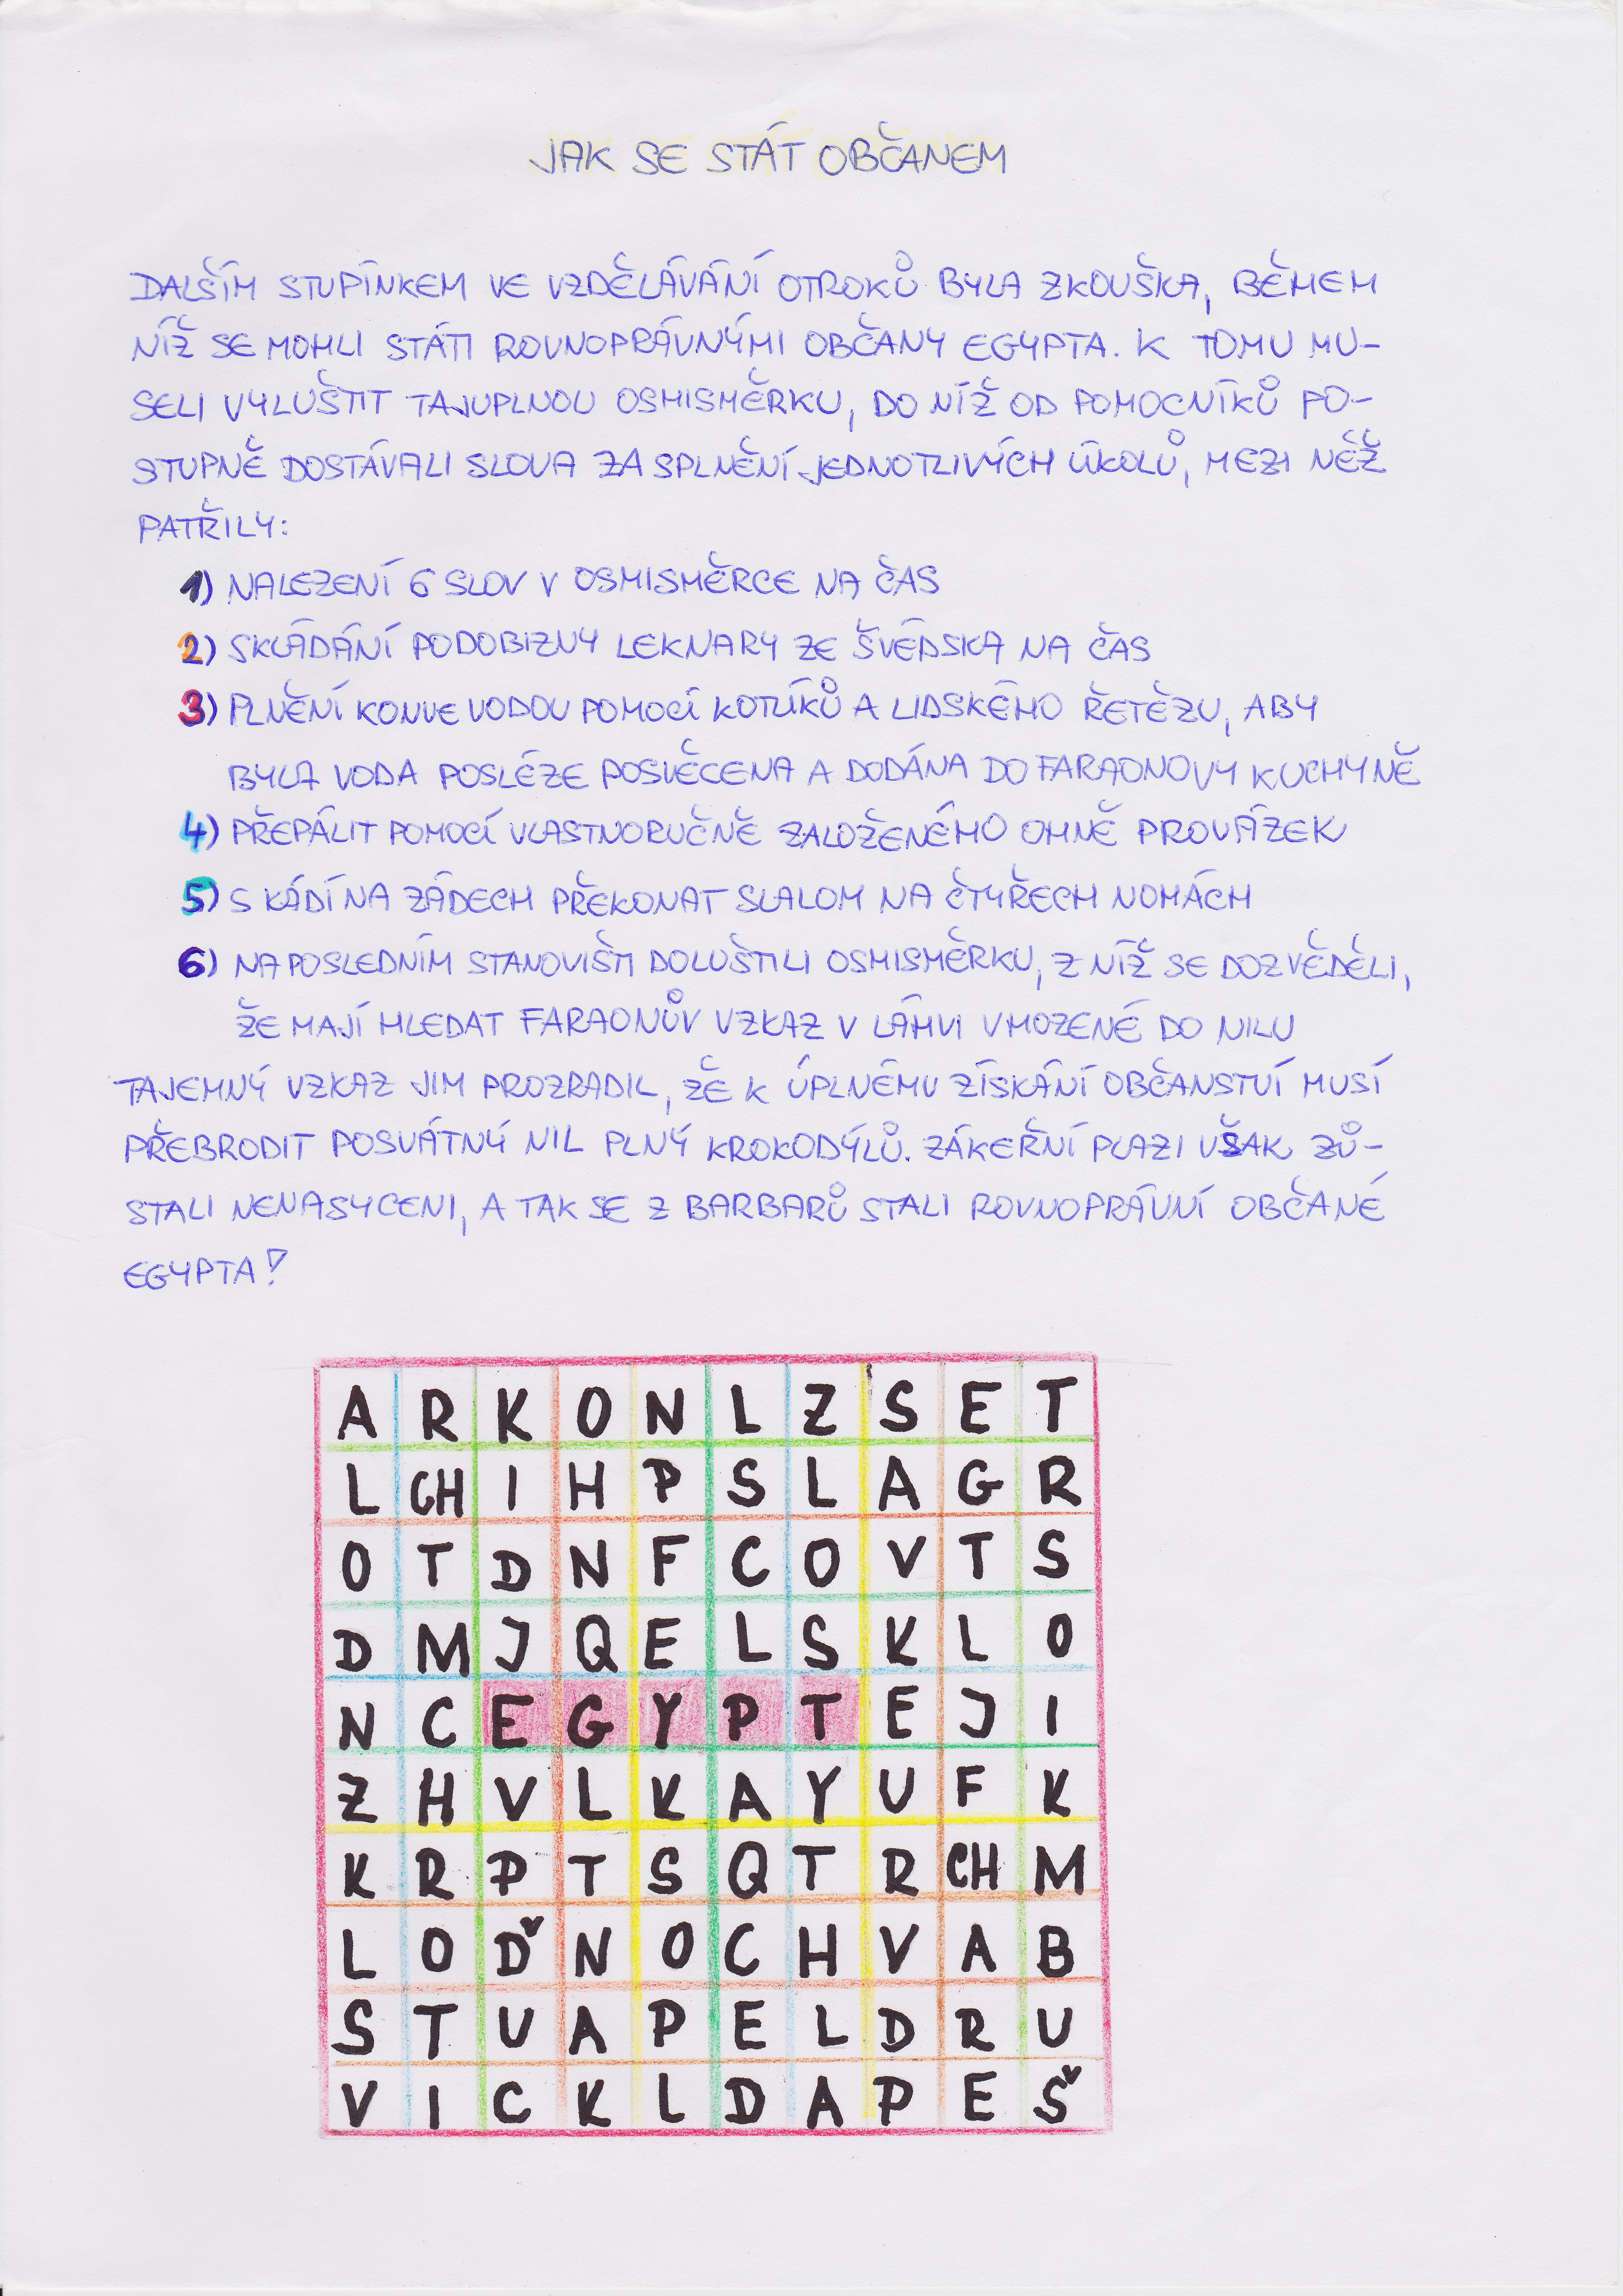 JAK SE STÁT OBČANEM
DALŠÍM STUPÍNKEM VE VZDĚLÁVÁNÍ OTROKŮ BYLA ZKOUŠKA, BĚHEM
NÍŽ SE MOHLI STÁTI ROVNOPRÁVNÝMI OBČANY EGYPTA. K TOMU MU-
SELI VYLUŠTIT TAJUPLNOU OSMISMĚRKU, DO NÍŽ OD POMOCNÍKŮ PO-
STUPNĚ DOSTÁVALI SLOVA ZA SPLNĚNÍ JEDNOTLIVÝCH ÚKOLŮ, MEZI NĚŽ
PATŘILY:
1) NALEZENÍ 6 SLOV V OSMISMĚRCE NA ČAS
2) SKLÁDÁNÍ PODOBIZNY LEKNARY ZE ŠVÉDSKA NA ČAS
3) PLNĚNÍ KONVE VODOU POMOCÍ KOTLÍKŮ A LIDSKÉHO ŘETĚZU, ABY
BYLA VODA POSLÉZE POSVĚCENA A DODÁNA DO FARAONOVY KUCHYNĚ
4) PŘEPÁLIT POMOCÍ VLASTNORUČNĚ ZALOŽENÉHO OHNĚ PROVÁZEK
5) S KÁDÍ NA ZÁDECH PŘEKONAT SLALOM NA ČTYŘECH NOHÁCH
6) NA POSLEDNÍM STANOVIŠTI DOLUŠTILI OSMISMĚRKU, Z NÍŽ SE DOZVĚDĚLI,
ŽE MAJÍ HLEDAT FARAONŮV VZKAZ V LÁHVI VHOZENÉ DO NILU
TAJEMNÝ VZKAZ JIM PROZRADIL, ŽE K ÚPLNÉMU ZÍSKÁNÍ OBČANSTVÍ MUSÍ
PŘEBRODIT POSVÁTNÝ NIL PLNÝ KROKODÝLŮ. ZÁKEŘNÍ PLAZI VŠAK ZŮ-
STALI NENASYCENI, A TAK SE Z BARBARŮ STALI ROVNOPRÁVNÍ OBČANÉ
EGYPTA!
A R K O N L Z S E T
L CH I H P S L A G R
O T D N F C O V T S
D M J Q E L S K L O
N C E G Y P T E J I
Z H V L K A Y U F K
K R P T S Q T R CH M
L O Ď N O C H V A B
S T U A P E L D R U
V I C K L D A P E Š